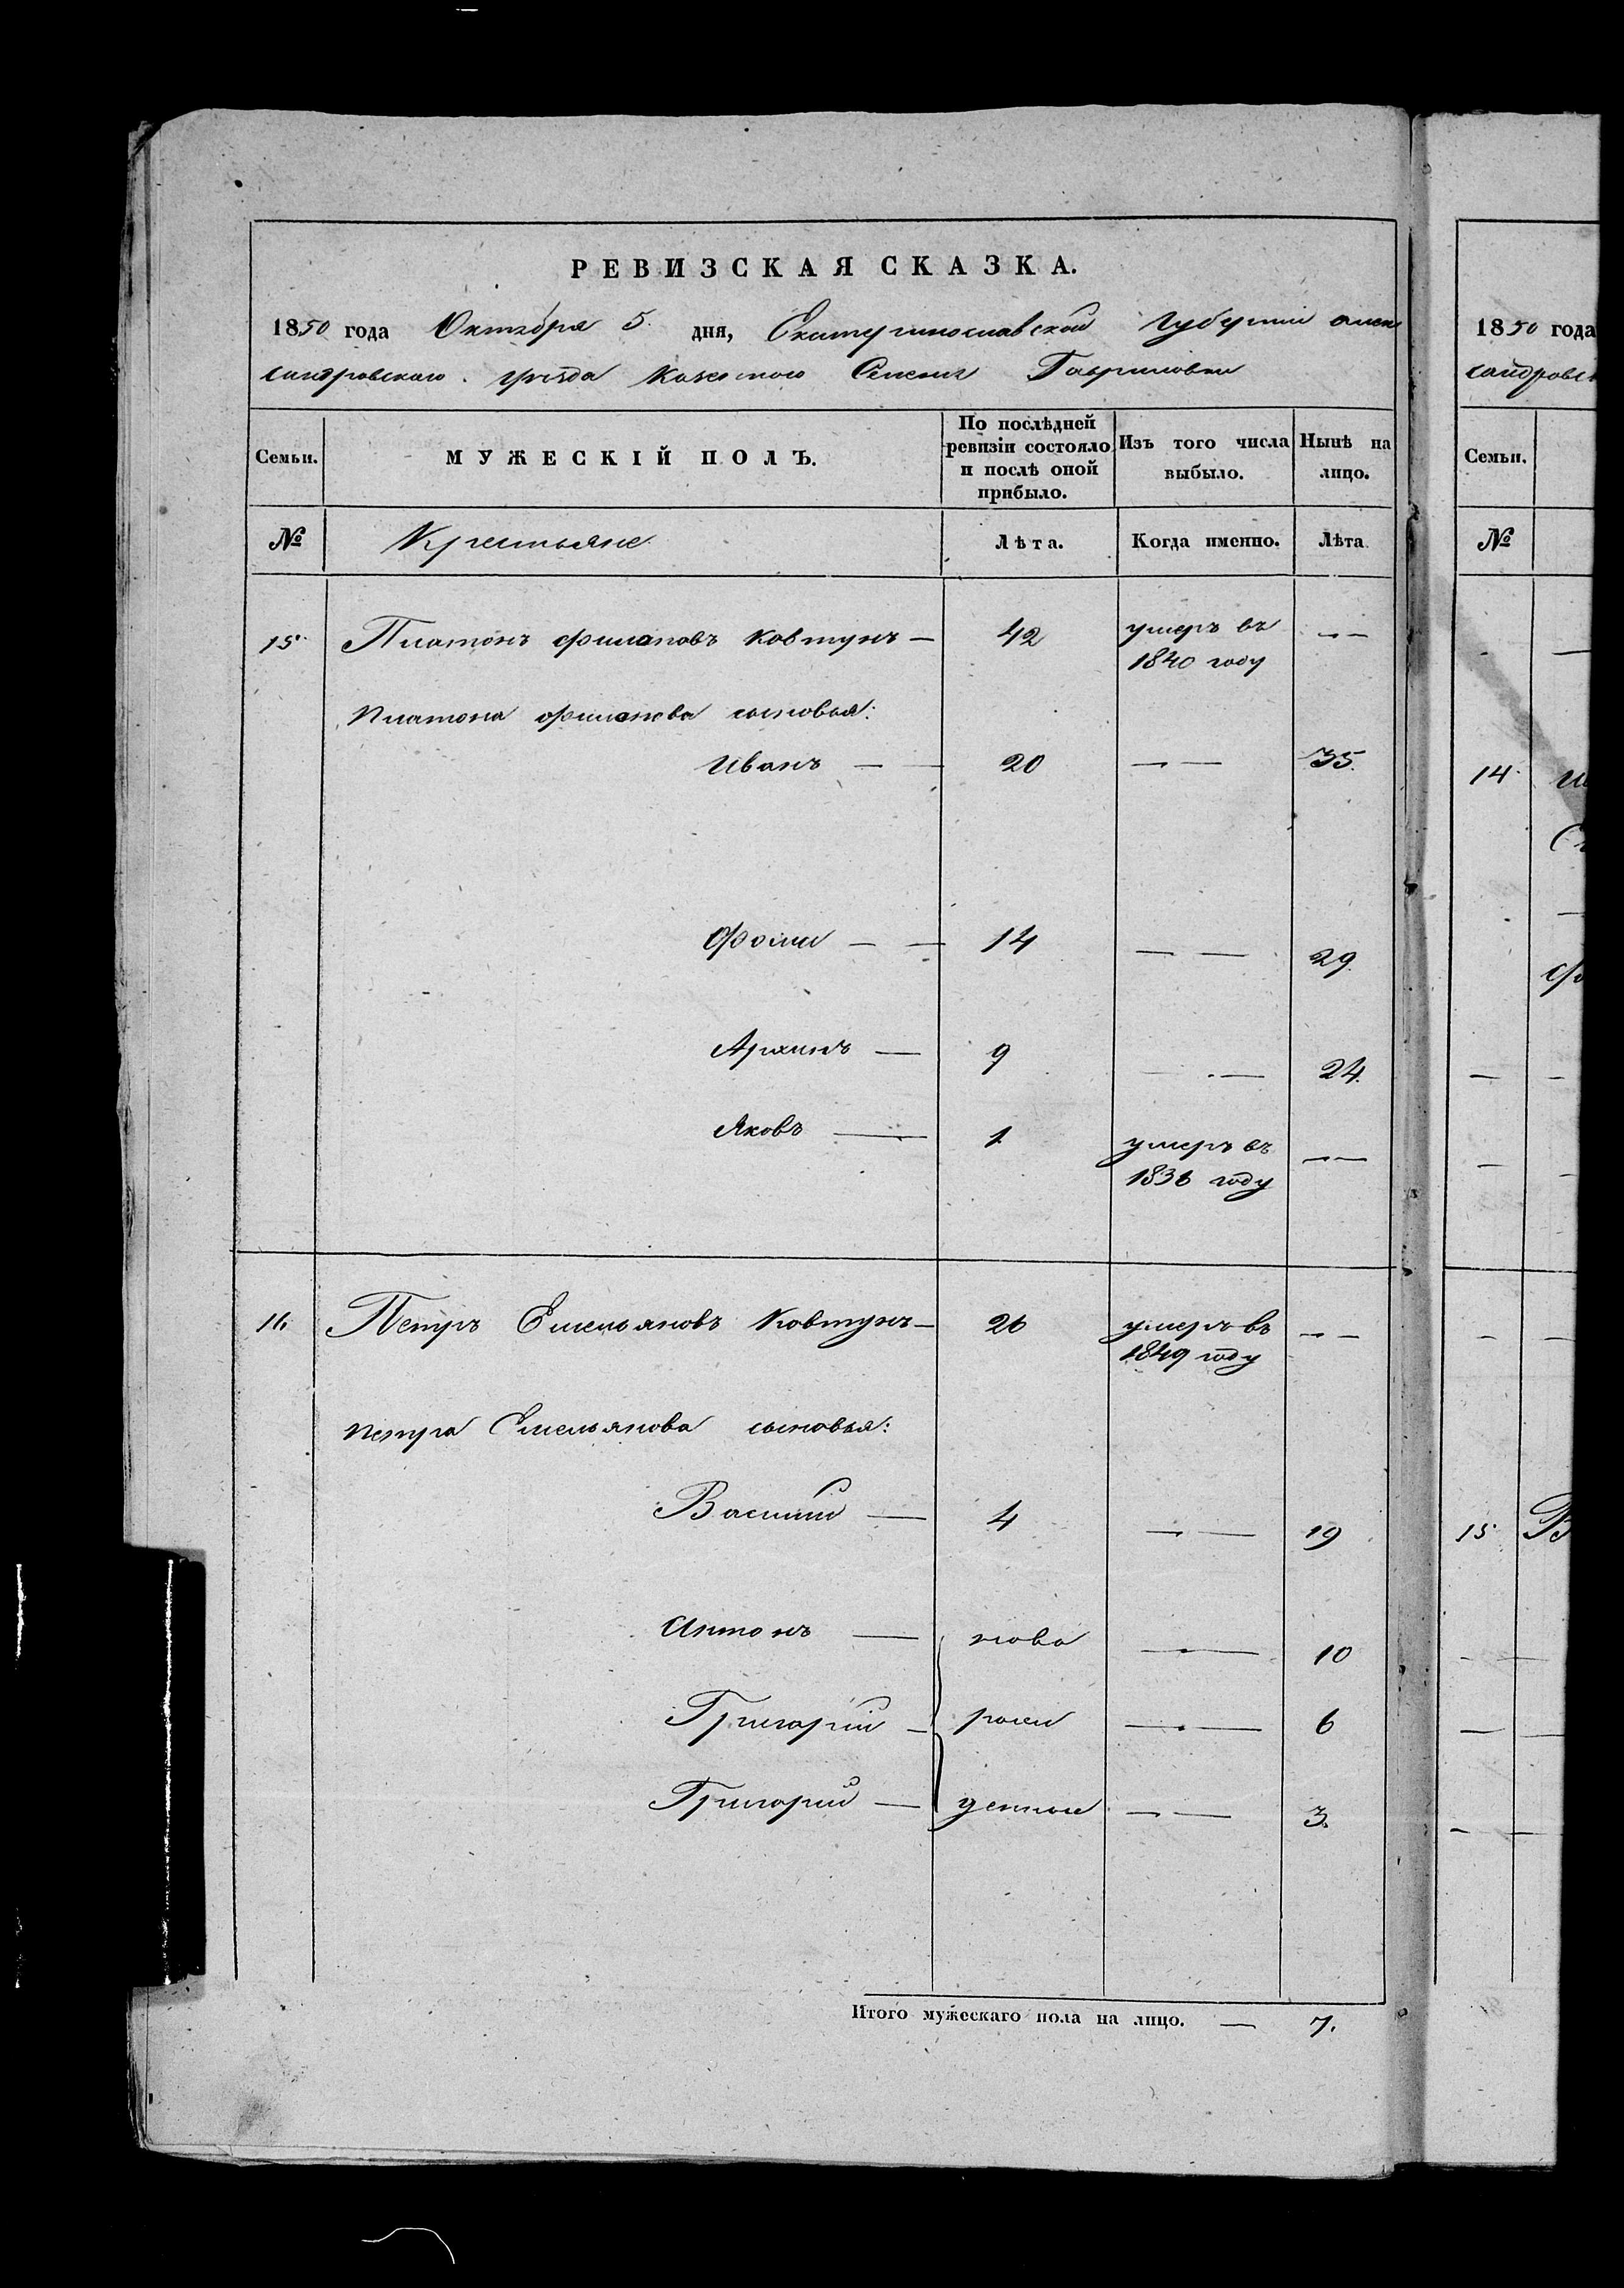 РЕВИЗСКАЯ СКАЗКА.
1850 года Октября 5. дня, Екатеринославской Губернии алек
сандровскаго уезда Казеннаго Селения Гавриловки
Семьи.
МУЖЕСКІЙ ПОЛЪ.
По послѣдней
ревизіи состояло
и послѣ оной
прибыло.
Изъ того числа
выбыло.
Нынѣ на
лицо.
№ Крестьяне Лѣта. Когда именно. Лѣта
15. Платонъ Филиповъ Ковтунъ — 42 умеръ въ — —
1840 году
Платона Филипова сыновья:
Иванъ — — 20 — — 35.
Фома — — 14 — — 29.
Архипъ — 9 — — 24.
Яковъ — 1 умеръ въ — —
1836 году
16. Петръ Емельяновъ Ковтунъ — 26 умеръ въ — —
1849 году
Петра Емельянова сыновья:
Василий — 4 — — 19
Антонъ — ново — — 10
Григорій — рож — — 6
Григорий — денные — — 3.
Итого мужескаго пола на лицо. — 7.
1850 года
сандровск
Семьи.
№
14.
15. В